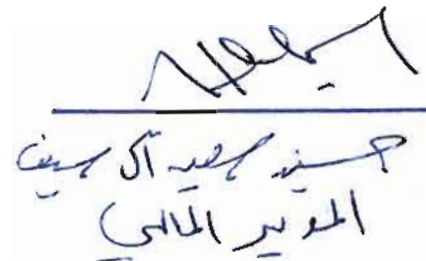 حسين سعيد آل سيف
المدير المالي